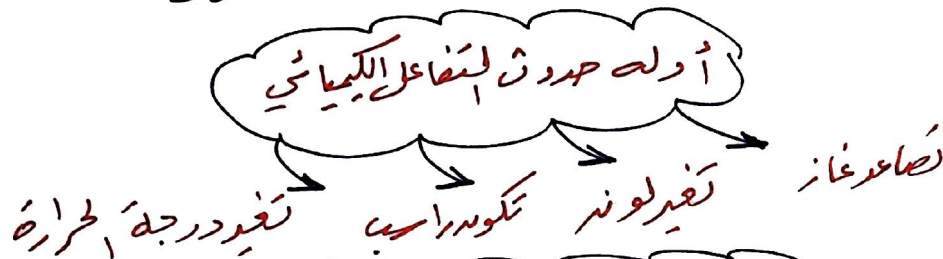 أدله حدوث التفاعل الكيميائي
تصاعد غاز
تغير لون
تكون راسب
تغير درجة الحرارة